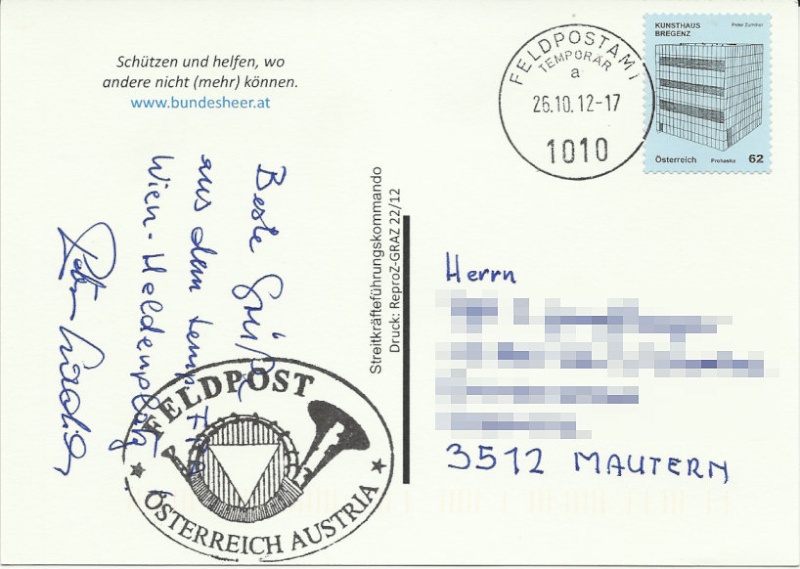 Schützen und helfen, wo
andere nicht (mehr) können.
www.bundesheer.at
Beste Grüße
aus dem temp. FPA
Wien-Heldenplatz
Streitkräfteführungskommando
Druck: ReproZ-GRAZ 22/12
FELDPOST
ÖSTERREICH AUSTRIA
FELDPOSTAMT
TEMPORÄR
a
26.10.12-17
1010
KUNSTHAUS
BREGENZ
Peter Zumthor
Österreich
Prohaska
62
Herrn
3512 MAUTERN